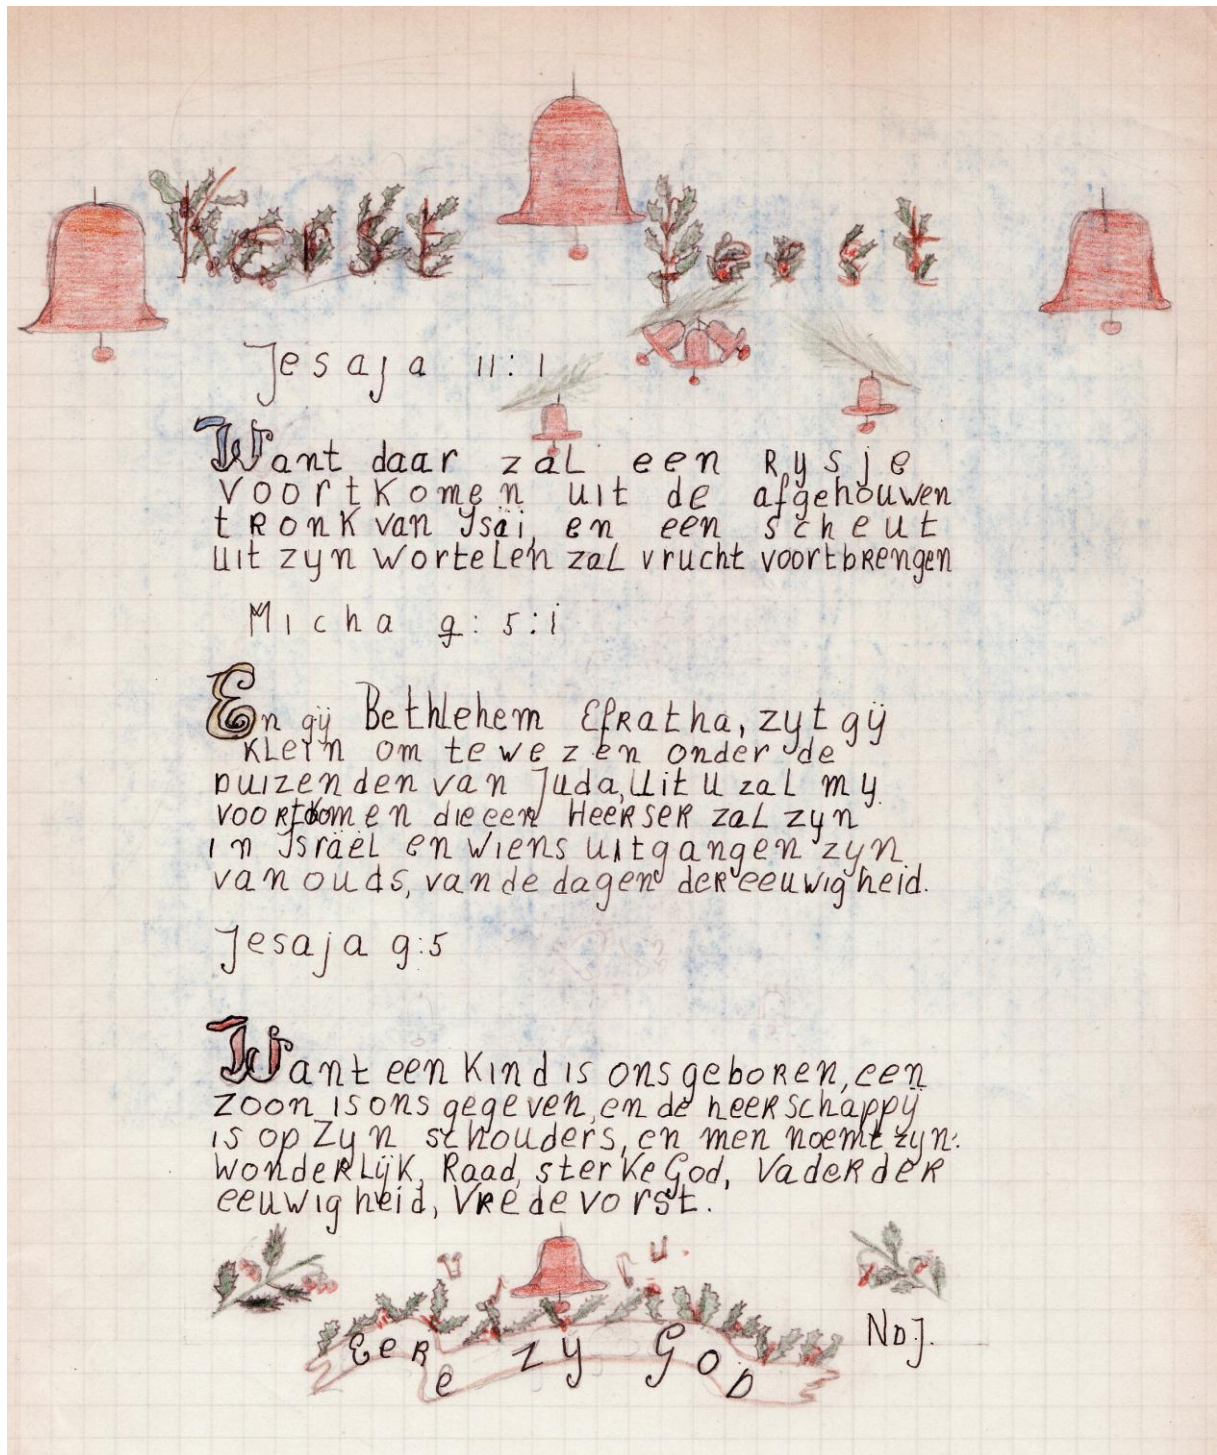 Kerst feest
Jesaja 11:1
Want daar zal een Rysje
voortkomen uit de afgehouwen
tronk van Ysäi, en een scheut
uit zyn wortelen zal vrucht voortbrengen
Micha g: 5:1
En gij Bethlehem Efratha, zyt gij
klein om te wezen onder de
duizenden van Juda, Uit U zal my
voortkomen die een Heerser zal zyn
in Ysräel en wiens uitgangen zyn
van ouds, van de dagen der eeuwigheid.
Jesaja 9:5
Want een Kind is ons geboren, een
zoon is ons gegeven, en de heerschappij
is op Zyn schouders, en men noemt zyn:
wonderlijk, Raad, sterke God, Vader der
eeuwigheid, Vredevorst.
Eere zy God
NDJ.